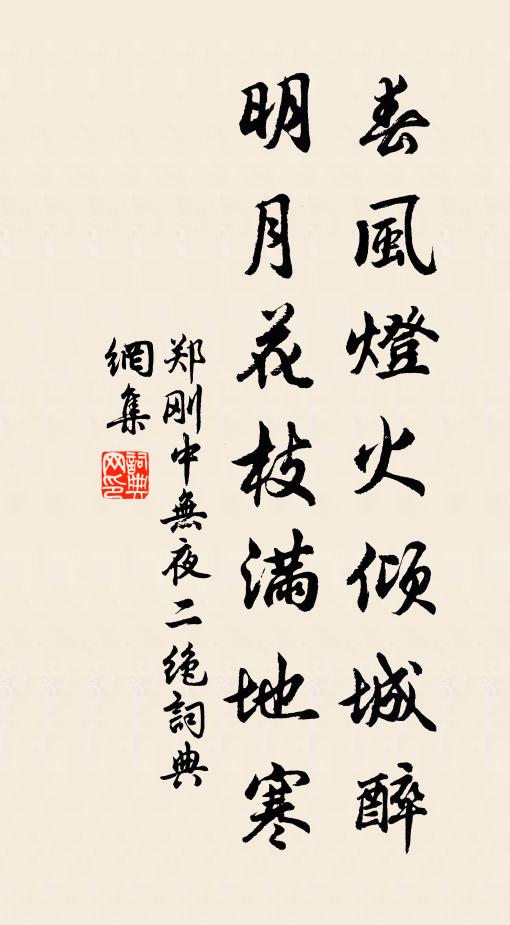 春風燈火傾城醉
明月花枝滿地寒
郑刚中無夜二绝詞典
網集
詞典網印